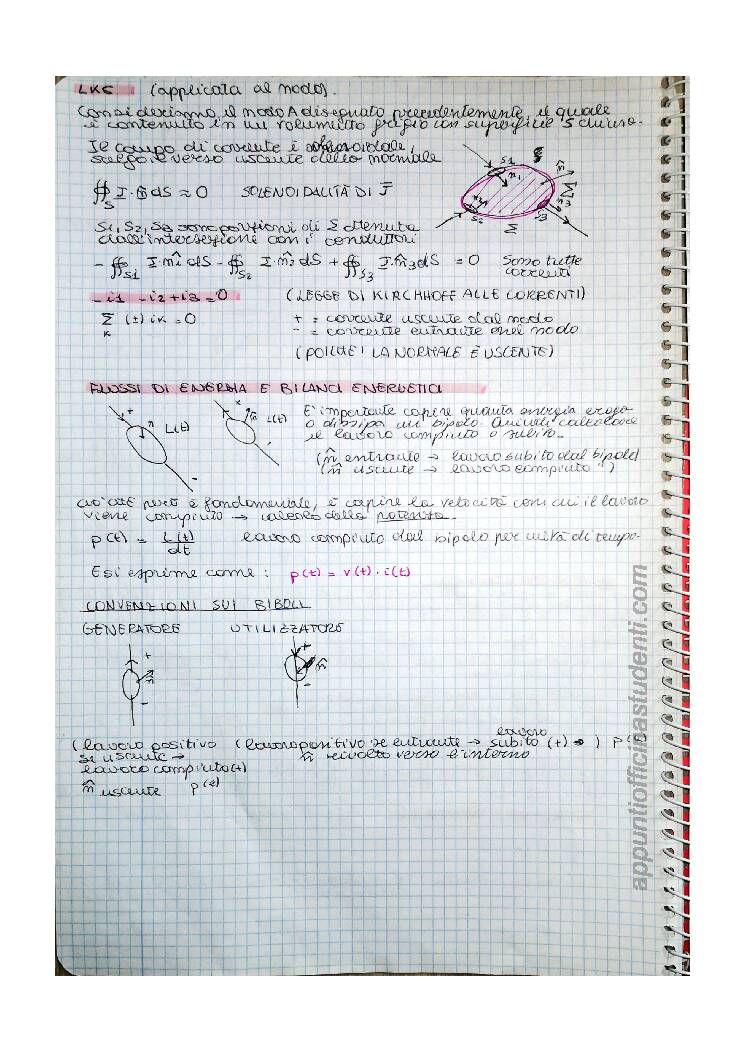 LKC (applicata al nodo).
Consideriamo il nodo A disegnato precedentemente, il quale
è contenuto in un volumetto grigio con superficie S chiusa.
Il campo di corrente è solenoidale,
scelgo il verso uscente della normale
∯S J · n̂ dS = 0 SOLENOIDALITÀ DI J̄
S1, S2, S3 sono porzioni di Σ ottenuta
dall'intersezione con i conduttori
S1 n1 n̂ Σ n3 S3 S2 Σ
- ∯S1 J·n̂1 dS - ∯S2 J·n̂2 dS + ∯S3 J·n̂3 dS = 0 Sono tutte
correnti
-i1 -i2+i3=0 (LEGGE DI KIRCHHOFF ALLE CORRENTI)
Σk (±) ik = 0 + = corrente uscente dal nodo
- = corrente entrante nel nodo
(POICHE' LA NORMALE È USCENTE)
FLUSSI DI ENERGIA E BILANCI ENERGETICI
+ n L(t) - + n̂ L(t) -
E' importante capire quanta energia eroga
o dissipa un bipolo. Quindi calcolare
il lavoro compiuto o subito.
(n̂ entrante → lavoro subito dal bipolo)
(n̂ uscente → lavoro compiuto ")
Ciò che però è fondamentale, è capire la velocità con cui il lavoro
viene compiuto → calcolo della potenza.
p(t) = L(t)/dt lavoro compiuto dal bipolo per unità di tempo.
E si esprime come: p(t) = v(t) · i(t)
CONVENZIONI SUI BIPOLI
GENERATORE UTILIZZATORE
+ n̂ - + n̂ -
(lavoro positivo (lavoro positivo se entrante → lavoro subito (+) → ) p(t)
se uscente → n̂ rivolto verso l'interno
lavoro compiuto (+)
n̂ uscente p(t)
appuntiofficinastudenti.com